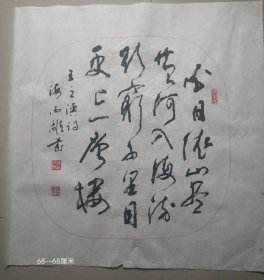 白日依山尽
黄河入海流
欲穷千里目
更上一层楼
王之涣诗
海雨龙书
68--68厘米